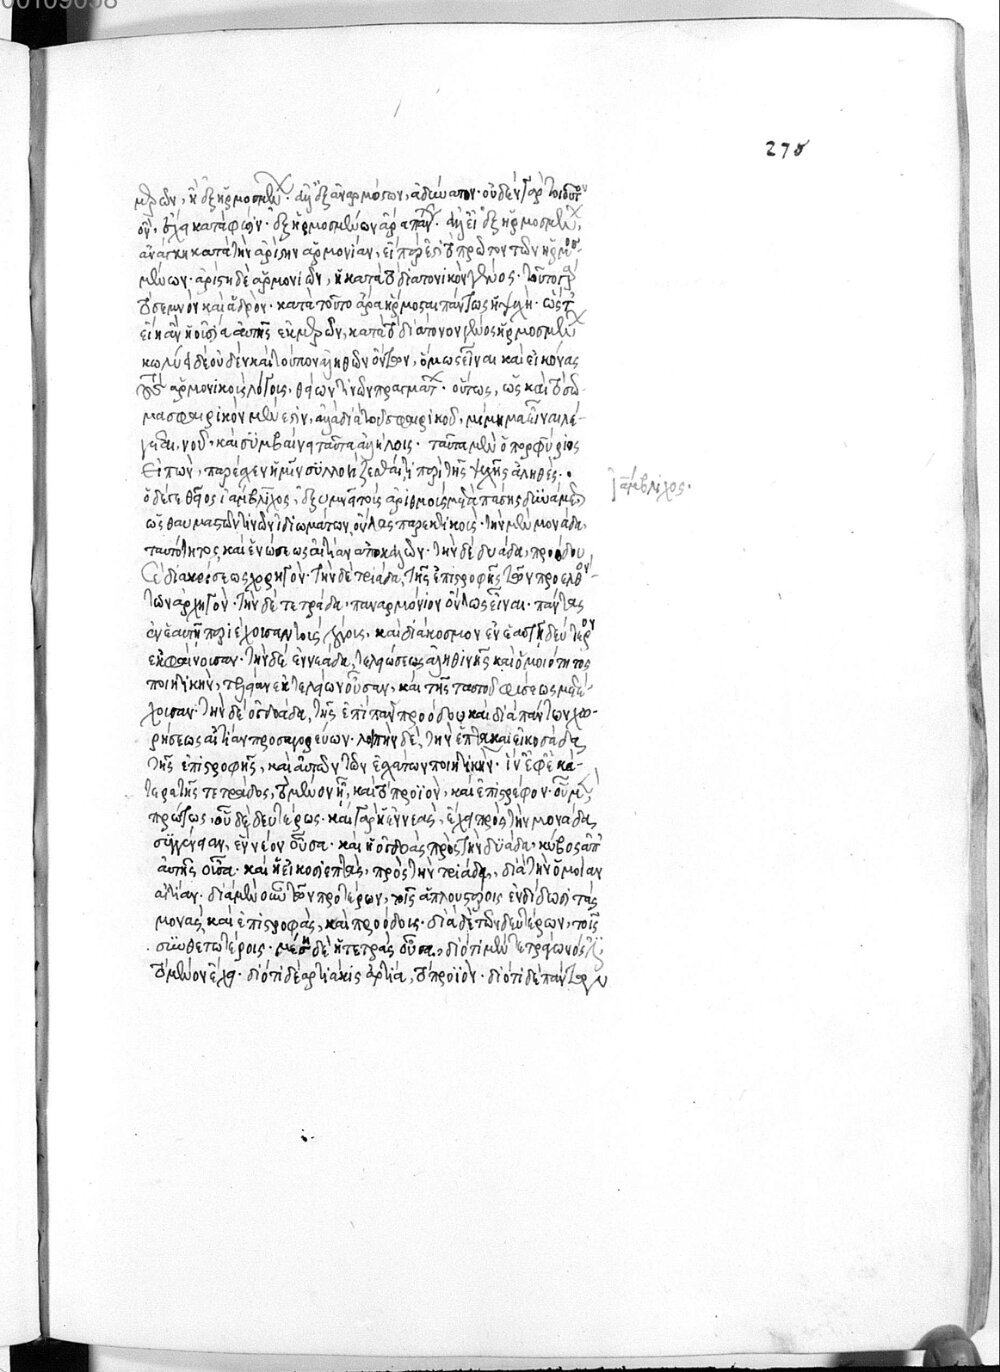 00109058
275
μερῶν, ἢ ἐξ ἡρμοσμένων. ἀλλ' ἐξ ἀναρμόστων, ἀδύνατον. οὐδὲν γὰρ τοιοῦτον
ὂν, ἔχει κατὰ φύσιν. ἐξ ἡρμοσμένων ἄρα πᾶν. ἀλλ' εἰ ἐξ ἡρμοσμένων,
ἀνάγκη κατὰ τὴν ἀρίστην ἁρμονίαν, εἴπερ ἐστὶ τὸ πρῶτον τῶν ἡρμο
μένων. ἀρίστη δὲ ἁρμονιῶν, ἡ κατὰ τὸ διατονικὸν γένος. τοῦτο γὰρ
τὸ σεμνὸν καὶ ἁδρόν. κατὰ τοῦτο ἄρα ἥρμοσται πάντως ἡ ψυχή. ὥστ'
εἴη ἂν ἡ οὐσία αὐτῆς ἐκ μερῶν, κατὰ τὸ διάτονον γένος ἡρμοσμένων
κωλύει δὲ οὐδὲν καὶ τούτων ἀληθῶν ὄντων, ὅμως εἶναι καὶ εἰκόνας
τοὺς ἁρμονικοὺς λόγους, θείων τινῶν πραγμάτων. οὕτως, ὡς καὶ τὸ σῶ
μα σφαιρικὸν μέν ἐστιν, ἀλλὰ διὰ τοῦ σφαιρικοῦ, μίμημα εἶναι λέ
γεται, νοῦ. καὶ συμβαίνει ταῦτα ἀλλήλοις. ταῦτα μὲν ὁ πορφύριος
εἰπὼν, παρέδωκεν ἡμῖν συλλογίζεσθαι, τί περὶ τῆς ψυχῆς ἀληθές.
ὁ δέ γε θεῖος ἰάμβλιχος, ἐξυμνεῖ τοὺς ἀριθμοὺς μετὰ πάσης δυνάμεως
ὡς θαυμαστῶν τινῶν ἰδιωμάτων ὄντας παρεκτικούς. τὴν μὲν μονάδα,
ταυτότητος καὶ ἑνώσεως αἰτίαν ἀποκαλῶν. τὴν δὲ δυάδα, προόδου
καὶ διακρίσεως χορηγόν. τὴν δὲ τριάδα, τῆς ἐπιστροφῆς τῶν προελθόν
των ἀρχηγόν. τὴν δὲ τετράδα, παναρμόνιον ὄντως εἶναι. πάντας
ἐν ἑαυτῇ περιέχουσαν τοὺς λόγους, καὶ διάκοσμον ἐν ἑαυτῇ δεύτερον
ἐκφαίνουσαν. τὴν δὲ ἐννεάδα, τελειώσεως ἀληθινῆς καὶ ὁμοιότητος
ποιητικὴν, τελείαν ἐκ τελείων οὖσαν, καὶ τῆς ταυτοῦ φύσεως μετέ
χουσαν. τὴν δὲ ὀγδοάδα, τῆς ἐπὶ πᾶν προόδου καὶ διὰ πάντων χω
ρήσεως αἰτίαν προσαγορεύων. λοιπὴν δὲ, τὴν ἑπτακαιεικοσάδα,
τῆς ἐπιστροφῆς, καὶ αὐτῶν τῶν ἐσχάτων ποιητικήν. ἵν' ἐφ' ἑκά
τερα τῆς τετράδος, τὸ μένον ᾖ, καὶ τὸ προϊὸν, καὶ ἐπιστρέφον. οὗ μὲν
πρώτως, οὗ δὲ δευτέρως. καὶ γὰρ ἡ ἐννεὰς, ἔχει πρὸς τὴν μονάδα
συγγένειαν, ἓν νέον οὖσα. καὶ ἡ ὀγδοὰς πρὸς τὴν δυάδα, κύβος ἀπ'
αὐτῆς οὖσα. καὶ ἡ εἰκοσιεπτὰς, πρὸς τὴν τριάδα, διὰ τὴν ὁμοίαν
αἰτίαν. διὰ μὲν οὖν τῶν προτέρων, τοῖς ἁπλουστέροις ἐνδίδωσι τὰς
μονὰς καὶ ἐπιστροφὰς, καὶ προόδους. διὰ δὲ τῶν δευτέρων, τοῖς
συνθετωτέροις. μέση δὲ ἡ τετρὰς οὖσα, διότι μὲν τετράγωνός ἐστι
τὸ μένον ἔχει. διότι δὲ ἀρτιάκις ἀρτία, τὸ προϊόν. διότι δὲ πάντων
ἰάμβλιχος.